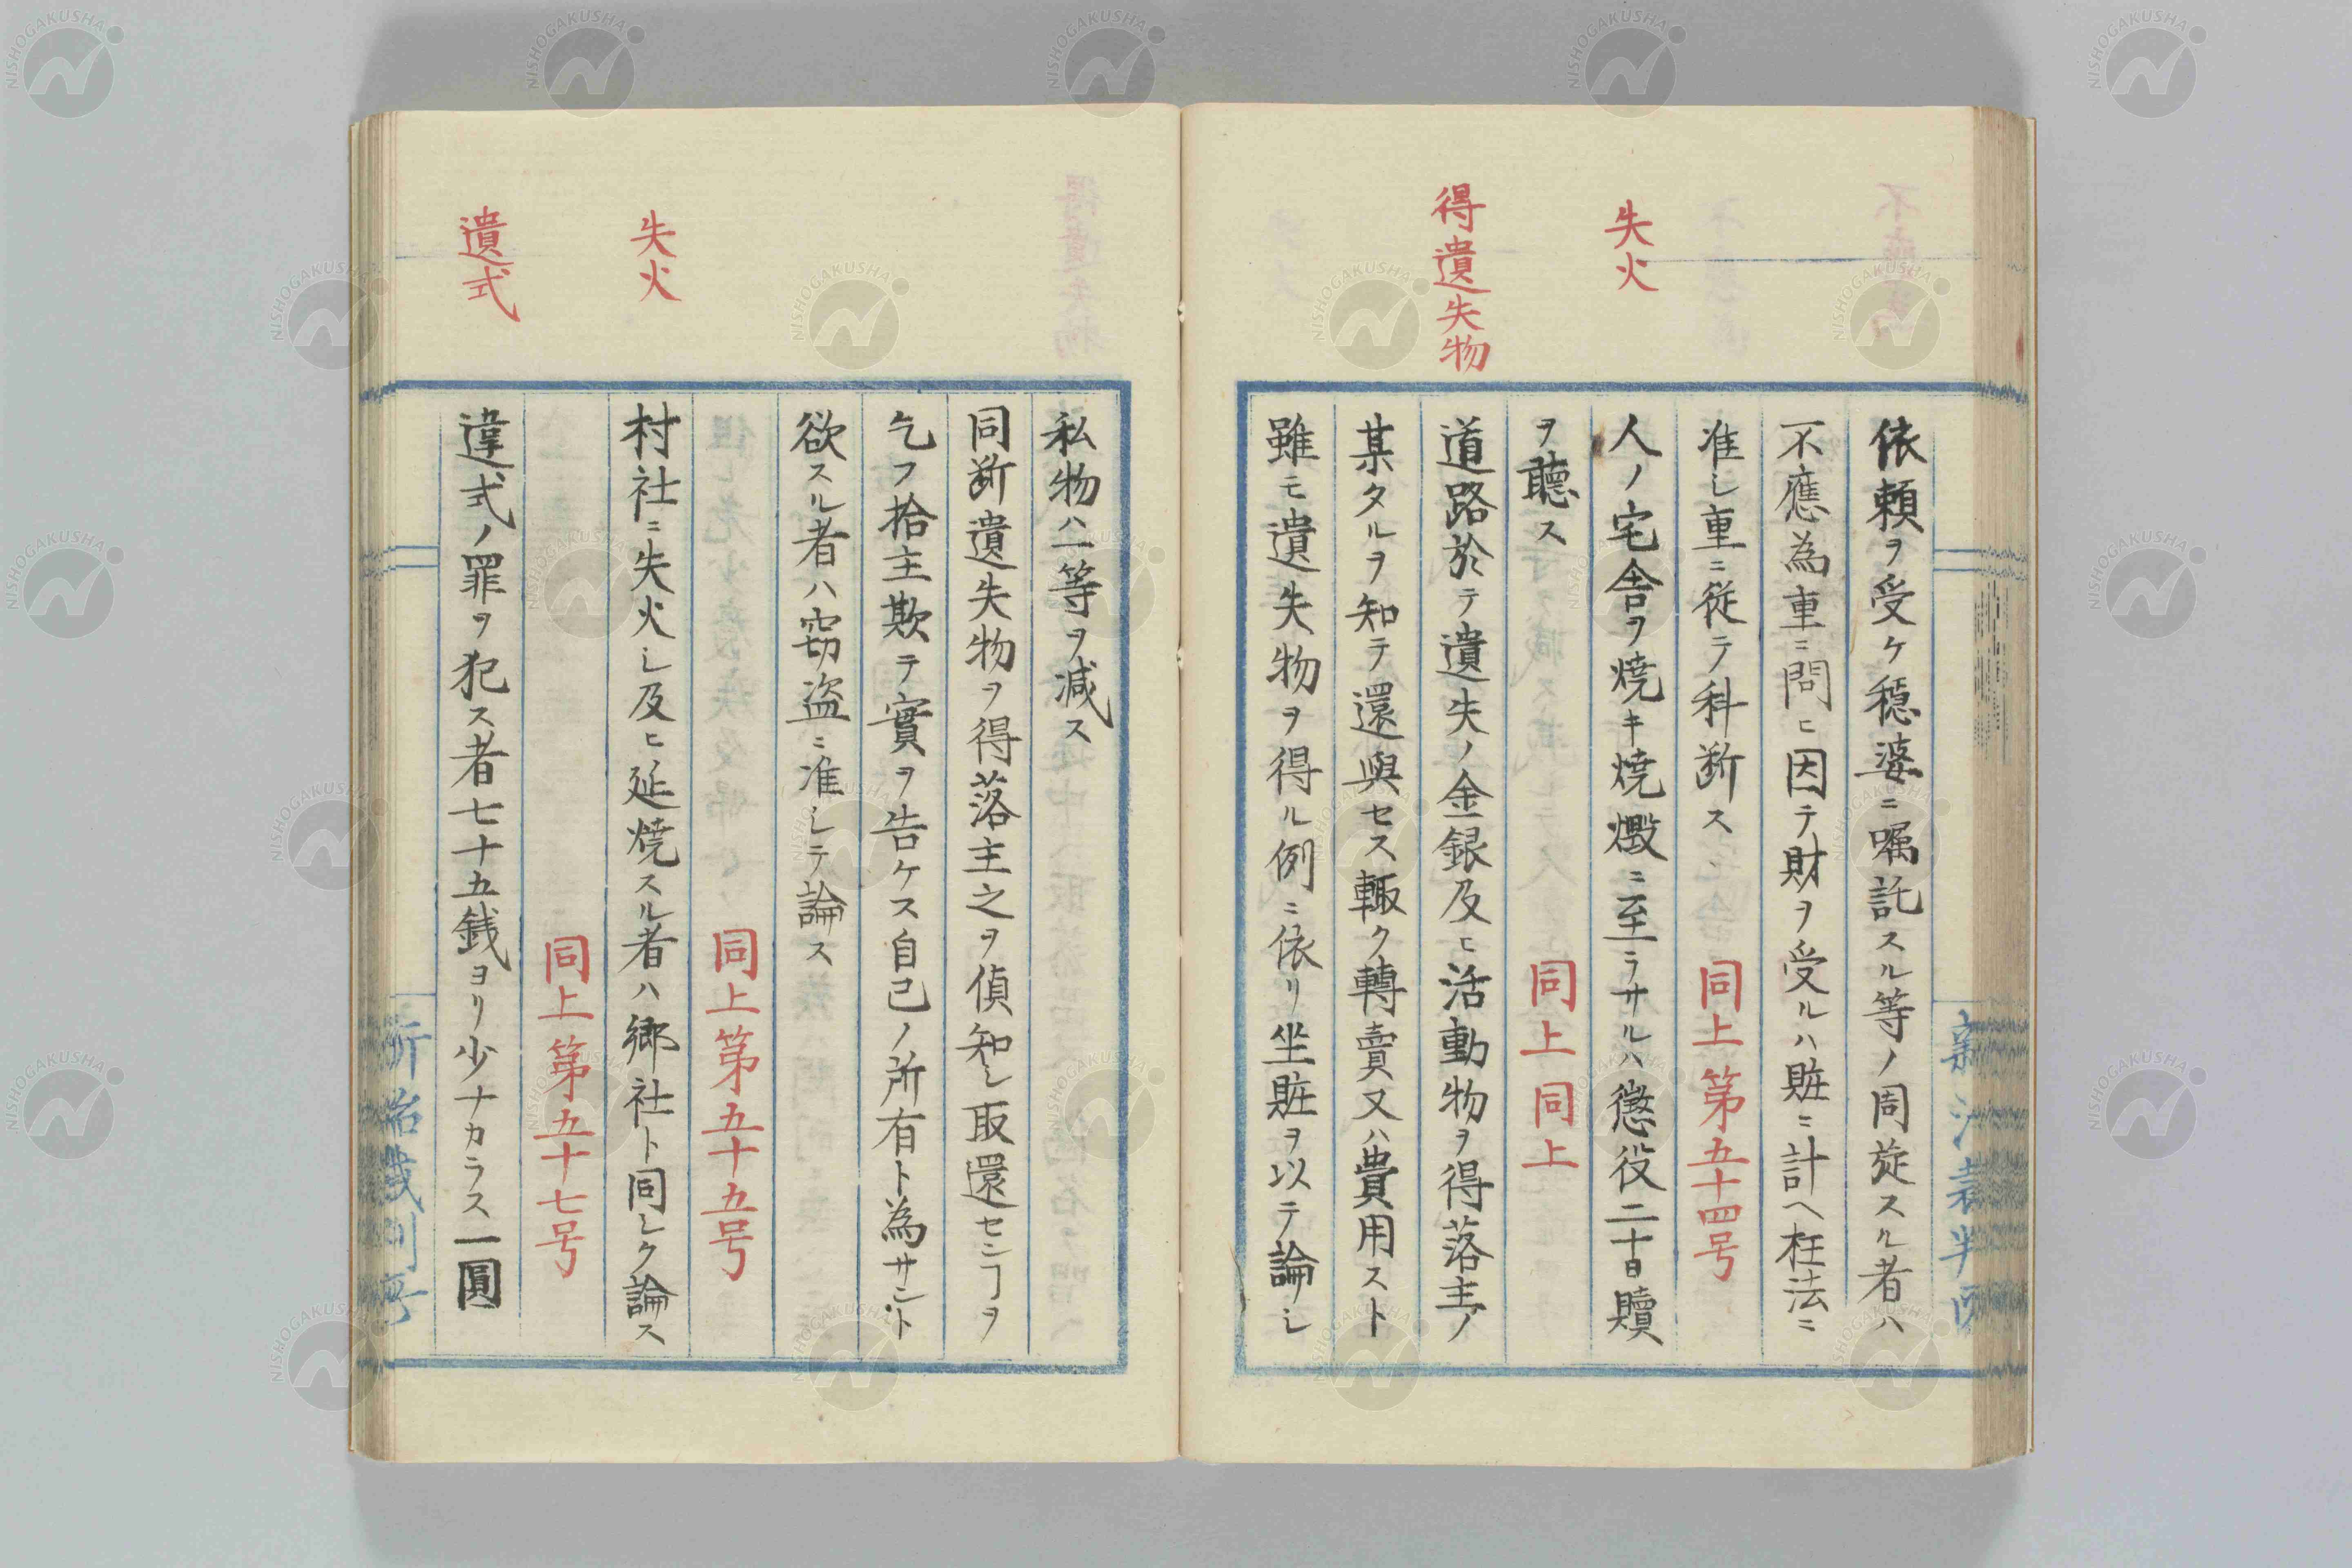 依頼ヲ受ケ穏婆ニ嘱託スル等ノ周旋スル者ハ
不應為重ニ問ヒ因テ財ヲ受ルハ賍ニ計ヘ枉法ニ
准シ重ニ従テ科断ス 同上第五十四号
失火
人ノ宅舎ヲ焼キ焼燬ニ至ラサルハ懲役二十日贖
ヲ聴ス 同上同上
得遺失物
道路於テ遺失ノ金銀及ヒ活動物ヲ得落主ノ
某タルヲ知テ還與セス輙ク轉賣又ハ費用スト
雖モ遺失物ヲ得ル例ニ依リ坐賍ヲ以テ論シ
私物ハ一等ヲ減ス
同断遺失物ヲ得落主之ヲ偵知シ取還セシヿヲ
乞フ拾主欺テ實ヲ告ケス自己ノ所有ト為サント
欲スル者ハ窃盗ニ准シテ論ス
同上第五十五号
失火
村社ニ失火シ及ヒ延焼スル者ハ郷社ト同シク論ス
同上第五十七号
遺式
違式ノ罪ヲ犯ス者七十五銭ヨリ少ナカラス一圓
NISHOGAKUSHA